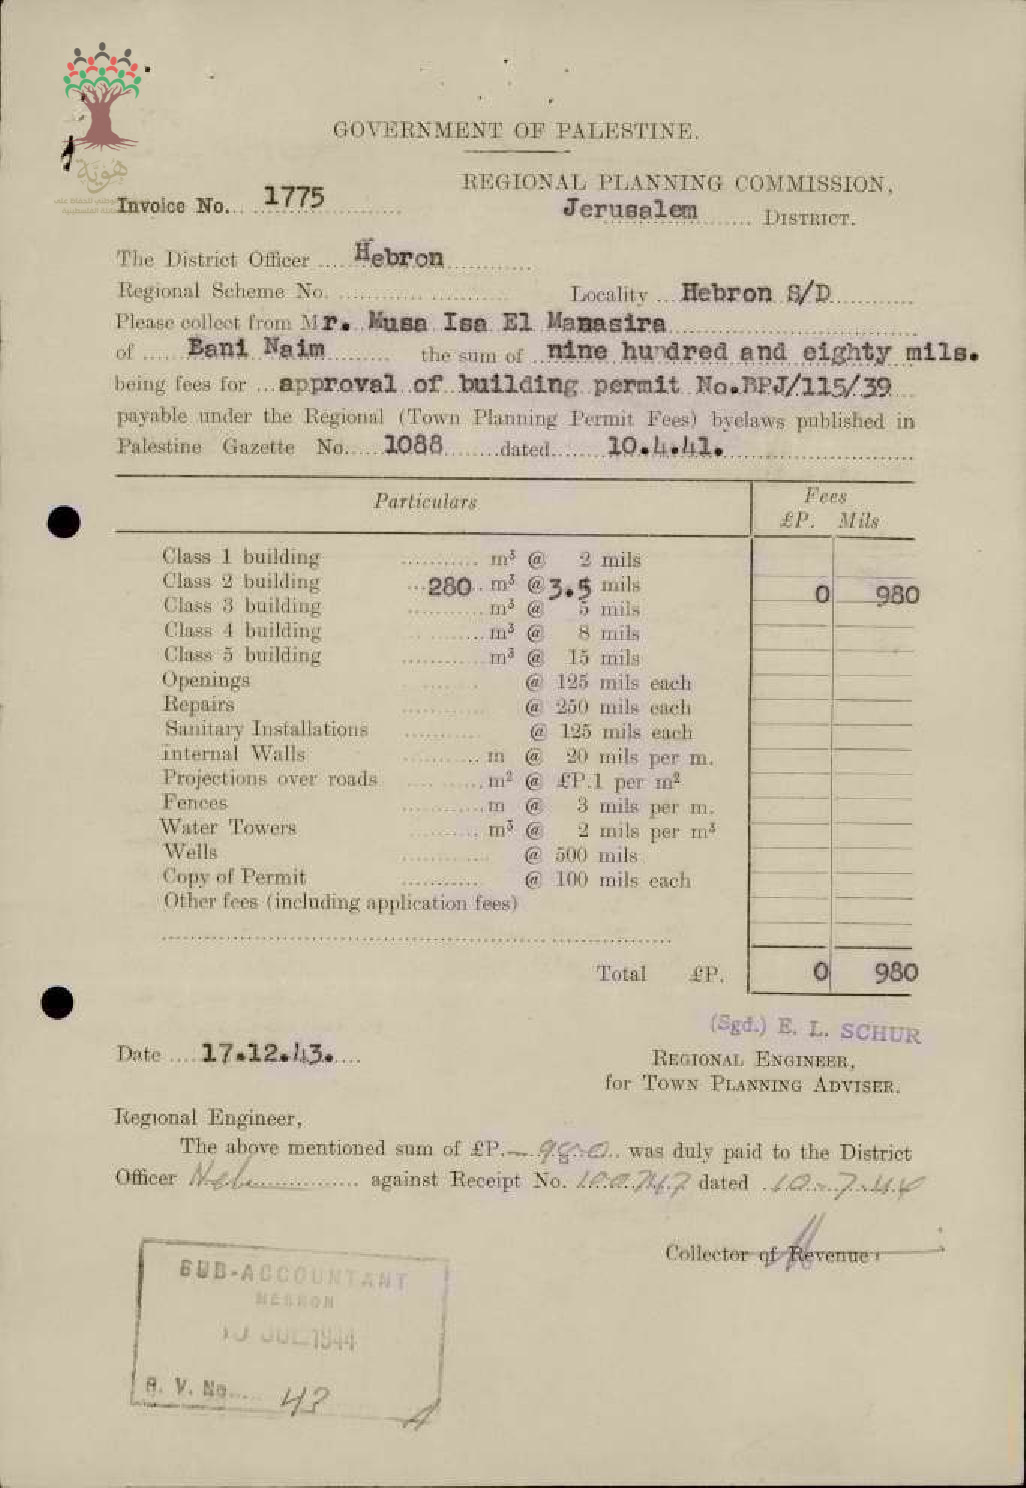 GOVERNMENT OF PALESTINE.
هُوِيَّة
REGIONAL PLANNING COMMISSION,
Invoice No. 1775
Jerusalem DISTRICT.
The District Officer Hebron
Regional Scheme No. Locality Hebron S/D
Please collect from Mr. Musa Isa El Manasira
of Bani Naim the sum of nine hundred and eighty mils.
being fees for approval of building permit No.BPJ/115/39
payable under the Regional (Town Planning Permit Fees) byelaws published in
Palestine Gazette No. 1088 dated 10.4.41.
Particulars Fees
£P. Mils
Class 1 building m³ @ 2 mils
Class 2 building 280 m³ @ 3.5 mils 0 980
Class 3 building m³ @ 5 mils
Class 4 building m³ @ 8 mils
Class 5 building m³ @ 15 mils
Openings @ 125 mils each
Repairs @ 250 mils each
Sanitary Installations @ 125 mils each
Internal Walls m @ 20 mils per m.
Projections over roads m² @ £P.1 per m²
Fences m @ 3 mils per m.
Water Towers m³ @ 2 mils per m³
Wells @ 500 mils
Copy of Permit @ 100 mils each
Other fees (including application fees)
Total £P. 0 980
(Sgd.) E. L. SCHUR
Date 17.12.43.
REGIONAL ENGINEER,
for TOWN PLANNING ADVISER.
Regional Engineer,
The above mentioned sum of £P.— 980 was duly paid to the District
Officer against Receipt No. 100747 dated 10.7.44
Collector of Revenue
SUB-ACCOUNTANT
HEBRON
10 JUL 1944
R. V. No. 43